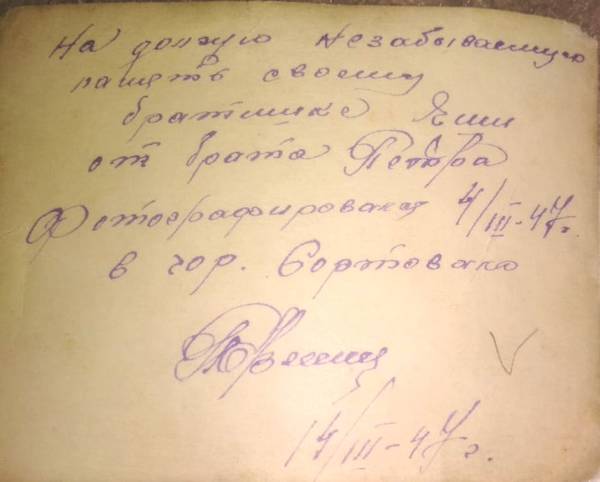 На долгую незабываемую
память своему
братишке Яши
от брата Петра
Фотографировался 4/III-47г.
в гор. Сортовала
14/III-47г.